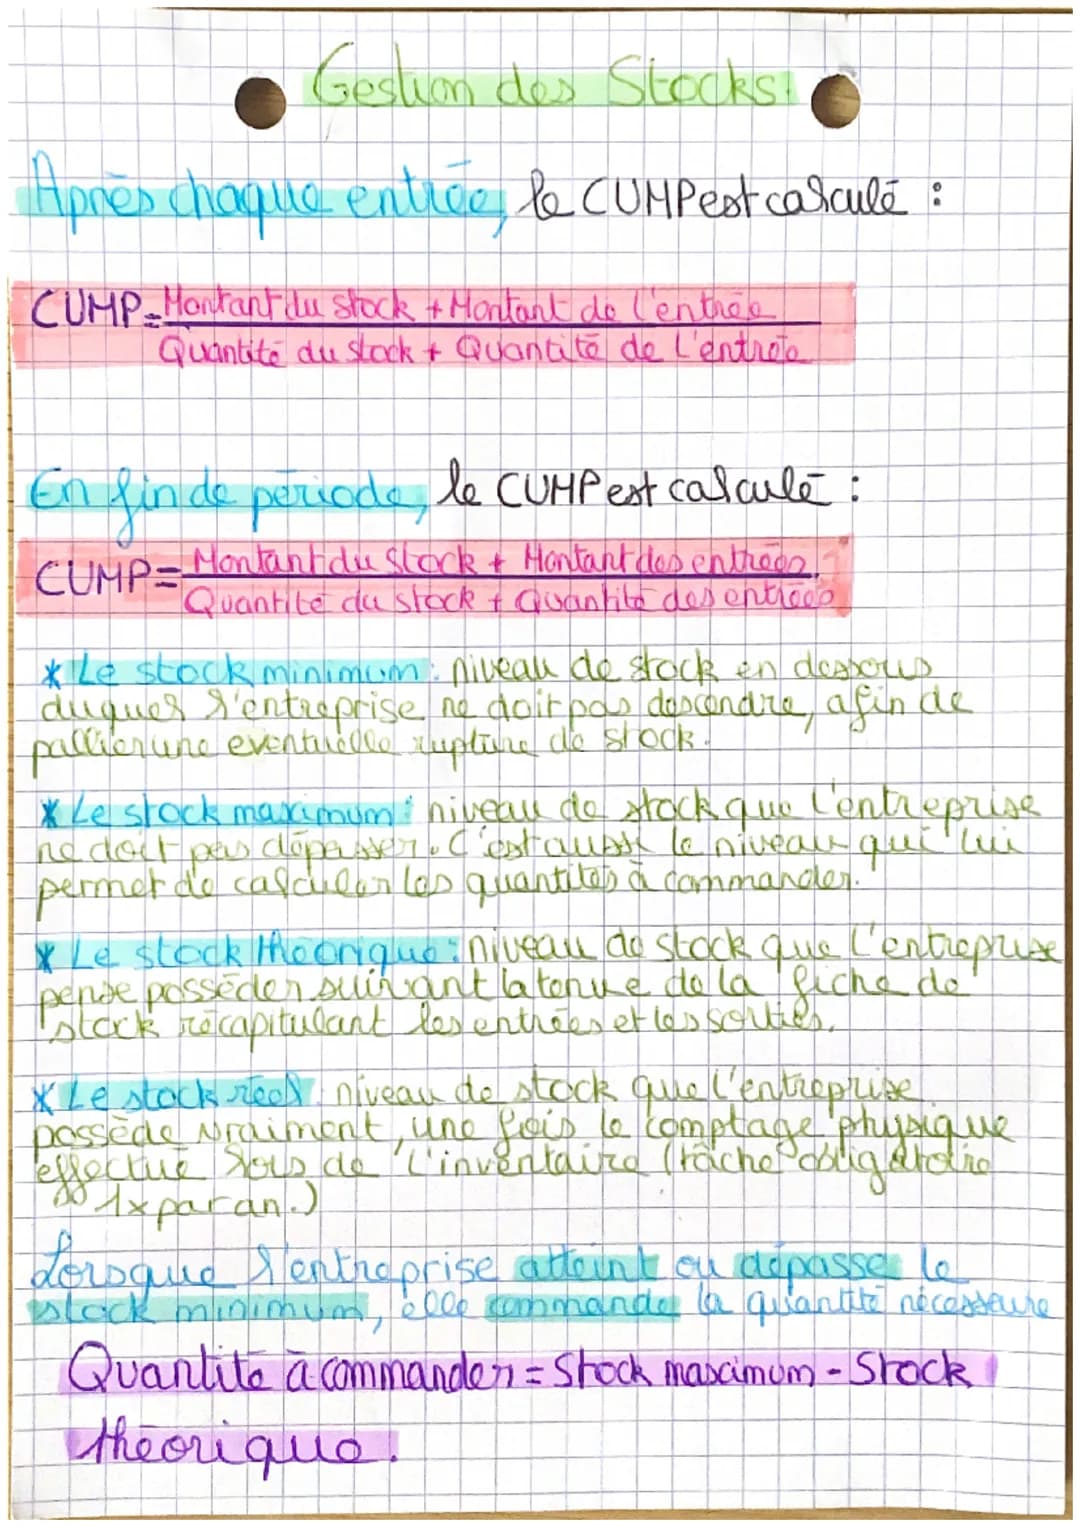 Gestion des Stocks
Après chaque entrée, le CUMP est calculé :
CUMP = Montant du stock + Montant de l'entrée
Quantité du stock + Quantité de l'entrée
En fin de période, le CUMP est calculé :
CUMP = Montant du stock + Montant des entrées
Quantité du stock + Quantité des entrées
* Le stock minimum : niveau de stock en dessous
duquel l'entreprise ne doit pas descendre, afin de
pallier une eventuelle rupture de stock.
* Le stock maximum : niveau de stock que l'entreprise
ne doit pas dépasser. C'est aussi le niveau qui lui
permet de calculer les quantités à commander.
* Le stock théorique : niveau de stock que l'entreprise
pense posséder suivant la tenue de la fiche de
stock récapitulant les entrées et les sorties.
* Le stock réel : niveau de stock que l'entreprise
possède vraiment, une fois le comptage physique
effectué lors de l'inventaire (tâche obligatoire
1x par an.)
Lorsque l'entreprise atteint ou dépasse le
stock minimum, elle commande la quantité nécessaire
Quantité à commander = Stock maximum - Stock
théorique.